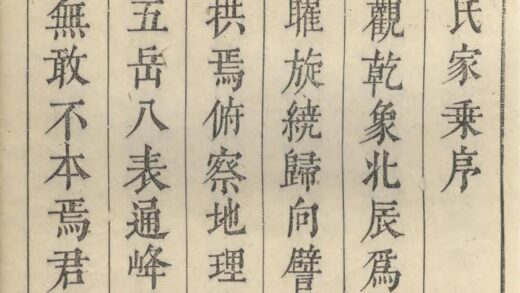 氏家乗序
觀乾象北辰爲
曜旋繞歸向譬
拱焉俯察地理
五岳八表通峰
無敢不本焉君